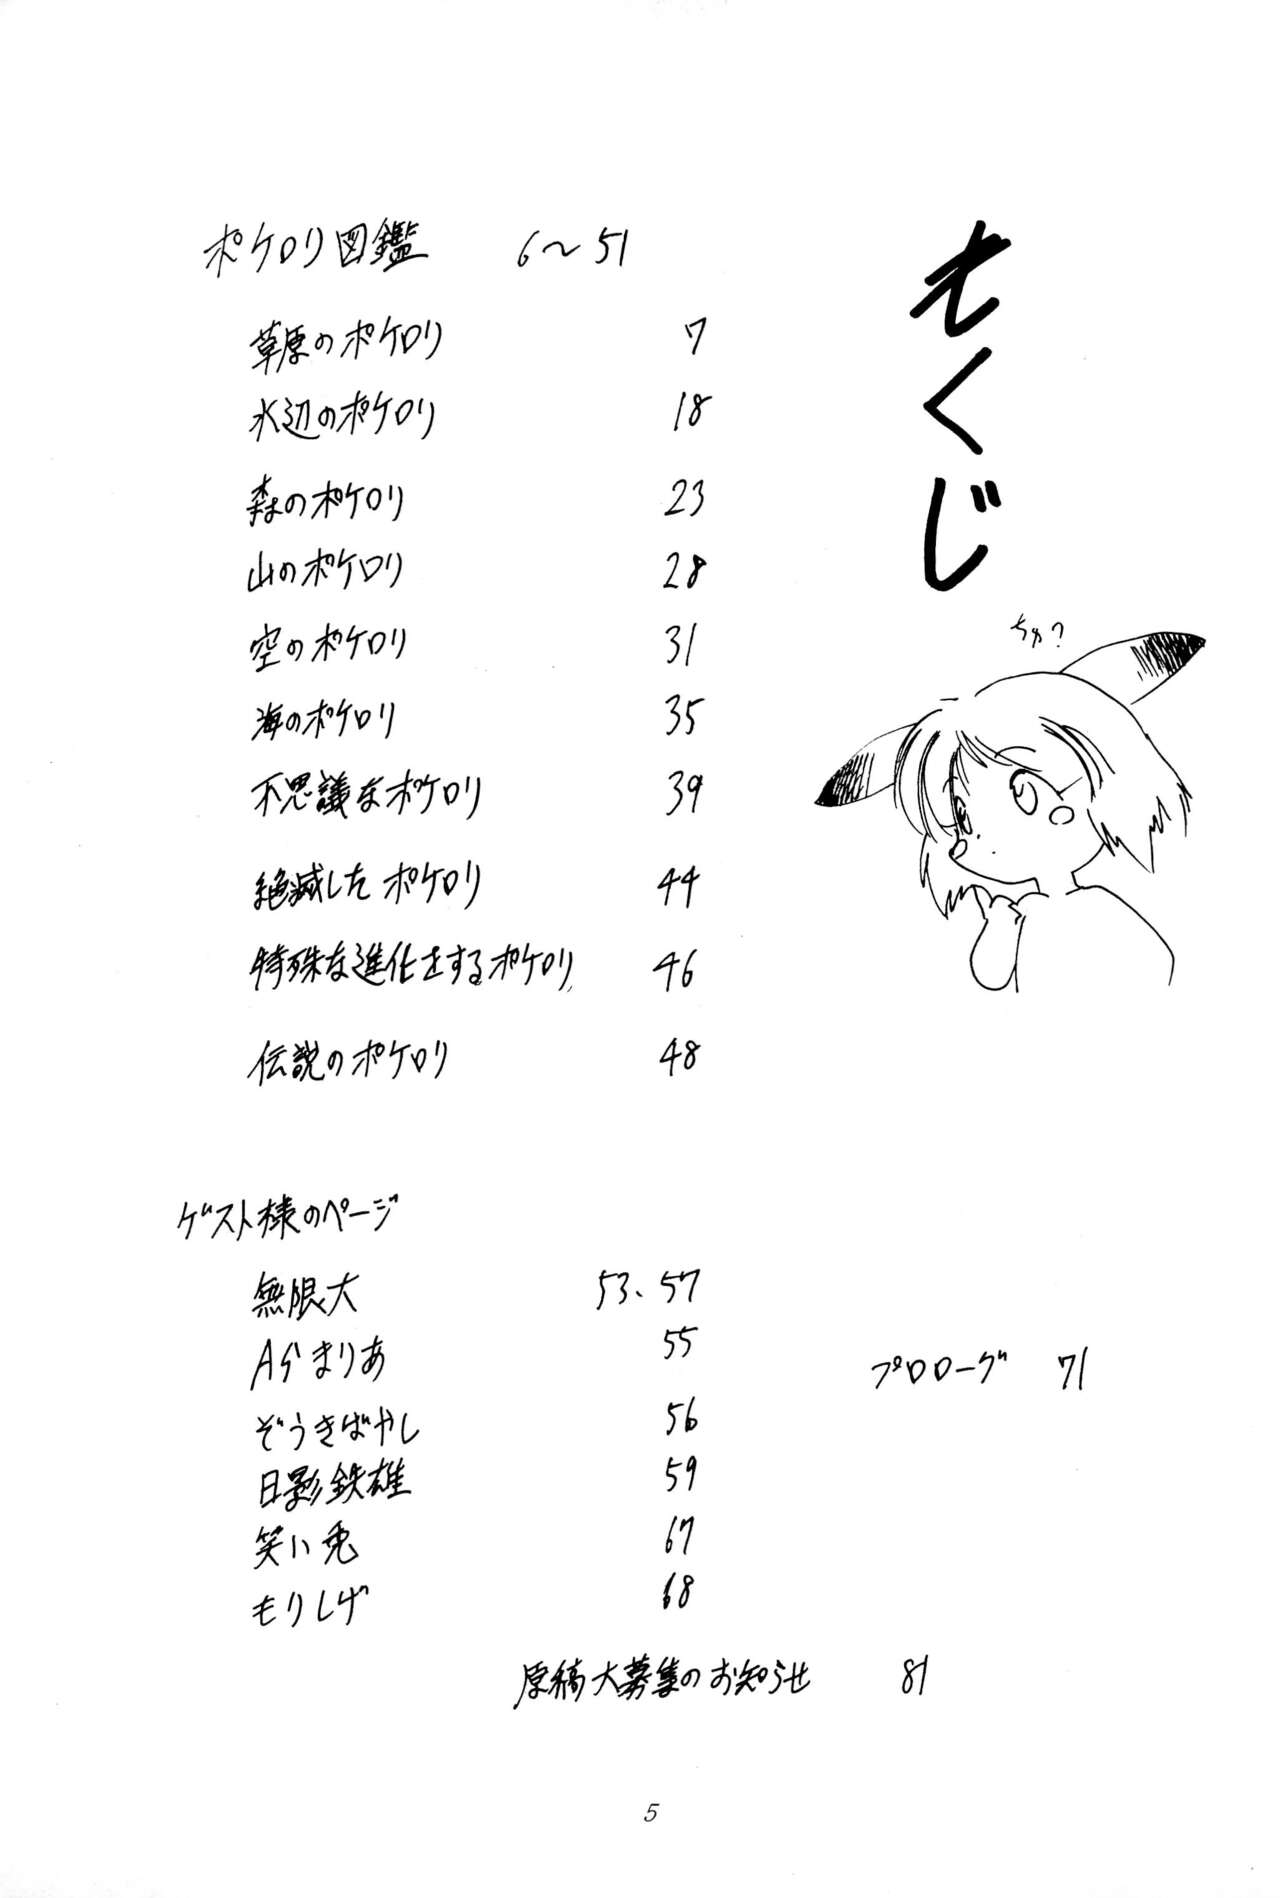 もくじ
ちゅ？
ポケロリ図鑑 6〜51
草原のポケロリ 7
水辺のポケロリ 18
森のポケロリ 23
山のポケロリ 28
空のポケロリ 31
海のポケロリ 35
不思議なポケロリ 39
絶滅したポケロリ 44
特殊な進化をするポケロリ 46
伝説のポケロリ 48
ゲスト様のページ
無限大 53、57
まりあ 55
ぞうきばやし 56
日影鉄雄 59
笑い兎 67
もりしげ 68
プロローグ 71
原稿大募集のお知らせ 81
5